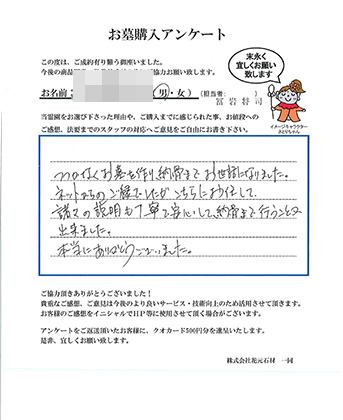 お墓購入アンケート
この度は、ご成約有り難う御座いました。
今後の商品開
協力お願い致します。
末永く
宜しくお願い
致します
お名前:
(男・女)
(担当者:
冨岩将司
イメージキャラクター
さとりちゃん
当霊園をお選び下さった理由や、ご購入までに感じられた事、お値段への
ご感想、法要までのスタッフの対応へご意見をご自由にお書き下さい。
つつがなくお墓を作り納骨までお世話になりました。
ネットからのご縁でしたがこちらにお任して、
諸々の説明も丁寧で安心して、納骨まで行うことが
出来ました。
本当にありがとうございました。
ご協力頂きありがとうございました!
貴重なご感想、ご意見は今後のより良いサービス・技術向上のため活用させて頂きます。
お客様のご感想をイニシャルでHP等に使用させて頂く場合がございます。
アンケートをご返送頂いたお客様に、クオカード500円分を進呈いたします。
是非、宜しくお願い致します。
株式会社花元石材 一同